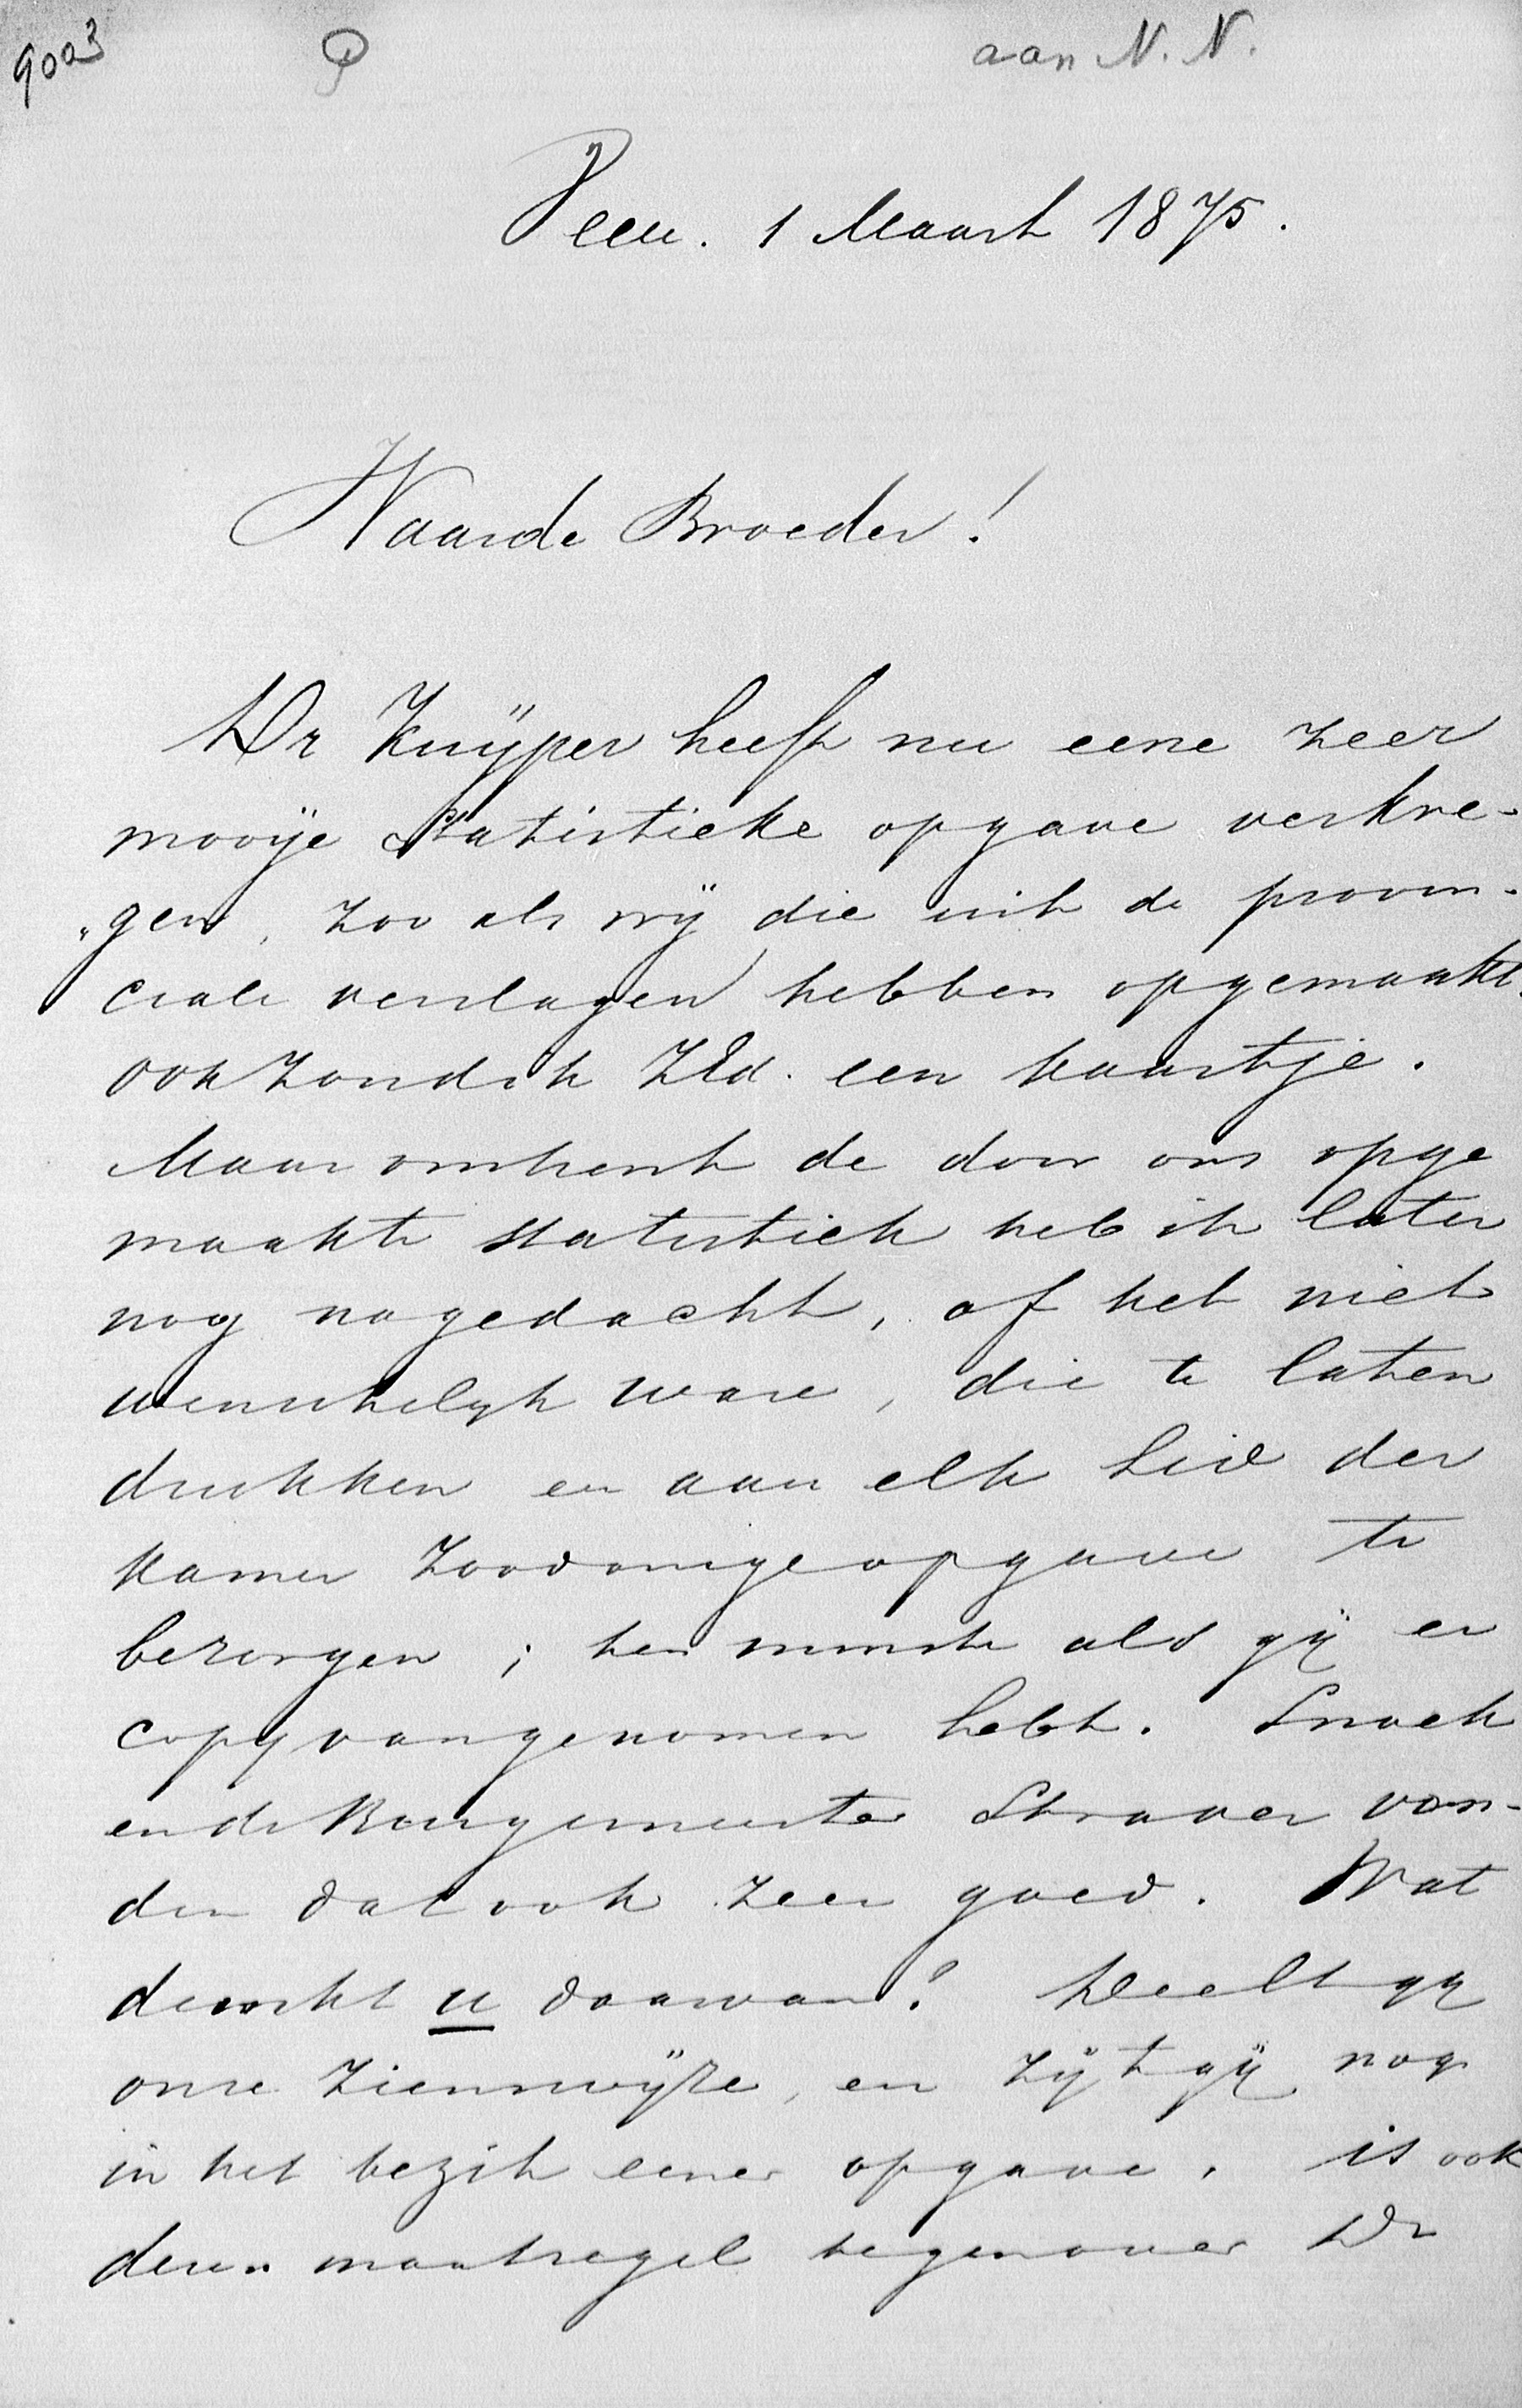 900³ aan N. N.
Veen. 1 Maart 1875.
Waarde Broeder!
Dr Kuÿper heeft nu eene zeer
mooije statistieke opgave verkre-
„gen, zoo als wÿ die uit de provin-
ciale verslagen hebben opgemaakt.
ook zondih ZEd. een kaartje.
Maar omtrent de door ons opge
maakte statistiek heb ik later
nog nagedacht, of het niet
wenschelyk ware, die te laten
drukken en aan elk Lid der
kamer zoodanige opgave te
bezorgen; ten minste als gÿ er
copy van genomen hebt. Snoek
en de Burgemeester Straver von-
den dat ook zeer goed. Wat
dunkt u daarvan? Deelt gy
onze zienswÿze, en zÿt gÿ nog
in het bezit eener opgave. is ook
deze maatregel tegenover Dr